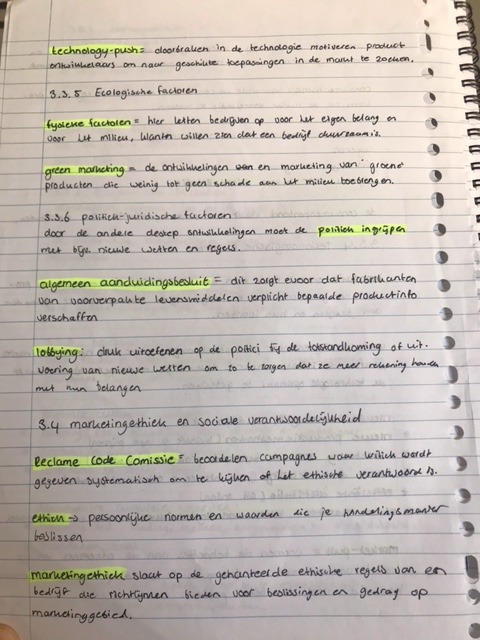 technology-push= doorbraken in de technologie motiveren product
ontwikkelaars om naar geschikte toepassingen in de markt te zoeken.
3.3.5 Ecologische factoren
fysieke factoren = hier letten bedrijven op voor het eigen belang en
voor het milieu, klanten willen zien dat een bedrijf duurzaam is.
green marketing = de ontwikkelingen van en marketing van 'groene'
producten die weinig tot geen schade aan het milieu toebrengen.
3.3.6 politiek-juridische factoren
door de andere destep ontwikkelingen moet de politiek ingrijpen
met bijv. nieuwe wetten en regels.
algemeen aanduidingsbesluit = dit zorgt ervoor dat fabrikanten
van voorverpakte levensmiddelen verplicht bepaalde productinfo
verschaffen
lobbying: druk uitoefenen op de politici bij de totstandkoming of uit-
voering van nieuwe wetten om zo te zorgen dat ze meer rekening houden
met hun belangen
3.4 marketingethiek en sociale verantwoordelijkheid
Reclame Code Comissie = beoordelen campagnes waar kritiek wordt
gegeven systematisch om te kijken of het ethische verantwoord is.
ethiek → persoonlijke normen en waarden die je handelingsmanier
beslissen
marketingethiek slaat op de gehanteerde ethische regels van een
bedrijf die richtlijnen bieden voor beslissingen en gedrag op
marketinggebied.